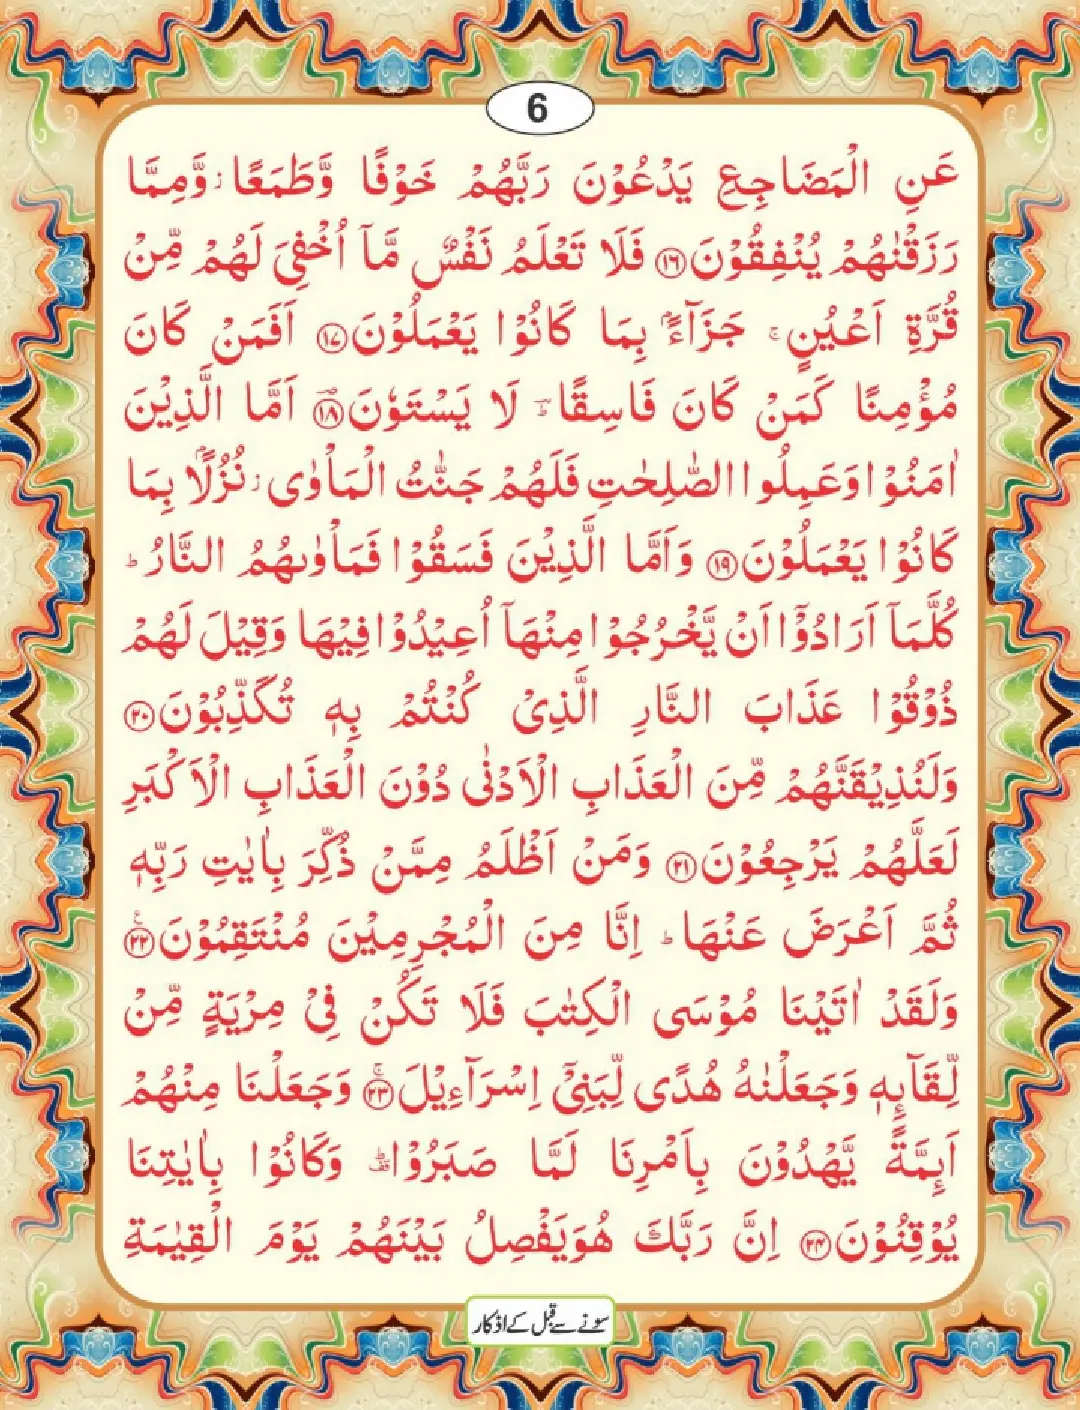 6
عَنِ الْمَضَاجِعِ يَدْعُوْنَ رَبَّهُمْ خَوْفًا وَّطَمَعًا ز وَّمِمَّا
رَزَقْنٰهُمْ يُنْفِقُوْنَ ﴿۱۶﴾ فَلَا تَعْلَمُ نَفْسٌ مَّآ اُخْفِیَ لَهُمْ مِّنْ
قُرَّةِ اَعْيُنٍ ۚ جَزَآءًۢ بِمَا كَانُوْا يَعْمَلُوْنَ ﴿۱۷﴾ اَفَمَنْ كَانَ
مُؤْمِنًا كَمَنْ كَانَ فَاسِقًا ؕ لَا يَسْتَوٗنَ ﴿۱۸﴾ اَمَّا الَّذِيْنَ
اٰمَنُوْا وَعَمِلُوا الصّٰلِحٰتِ فَلَهُمْ جَنّٰتُ الْمَاْوٰى ز نُزُلًاۢ بِمَا
كَانُوْا يَعْمَلُوْنَ ﴿۱۹﴾ وَاَمَّا الَّذِيْنَ فَسَقُوْا فَمَاْوٰىهُمُ النَّارُ ؕ
كُلَّمَآ اَرَادُوْٓا اَنْ يَّخْرُجُوْا مِنْهَآ اُعِيْدُوْا فِيْهَا وَقِيْلَ لَهُمْ
ذُوْقُوْا عَذَابَ النَّارِ الَّذِىْ كُنْتُمْ بِهٖ تُكَذِّبُوْنَ ﴿۲۰﴾
وَلَنُذِيْقَنَّهُمْ مِّنَ الْعَذَابِ الْاَدْنٰى دُوْنَ الْعَذَابِ الْاَكْبَرِ
لَعَلَّهُمْ يَرْجِعُوْنَ ﴿۲۱﴾ وَمَنْ اَظْلَمُ مِمَّنْ ذُكِّرَ بِاٰيٰتِ رَبِّهٖ
ثُمَّ اَعْرَضَ عَنْهَا ؕ اِنَّا مِنَ الْمُجْرِمِيْنَ مُنْتَقِمُوْنَ ﴿۲۲﴾ ع
وَلَقَدْ اٰتَيْنَا مُوْسَى الْكِتٰبَ فَلَا تَكُنْ فِىْ مِرْيَةٍ مِّنْ
لِّقَآىِٕهٖ وَجَعَلْنٰهُ هُدًى لِّبَنِىْٓ اِسْرَآءِيْلَ ﴿۲۳﴾ ۚ وَجَعَلْنَا مِنْهُمْ
اَىِٕمَّةً يَّهْدُوْنَ بِاَمْرِنَا لَمَّا صَبَرُوْا ؕ قف وَكَانُوْا بِاٰيٰتِنَا
يُوْقِنُوْنَ ﴿۲۴﴾ اِنَّ رَبَّكَ هُوَ يَفْصِلُ بَيْنَهُمْ يَوْمَ الْقِيٰمَةِ
سونے سے قبل کے اذکار